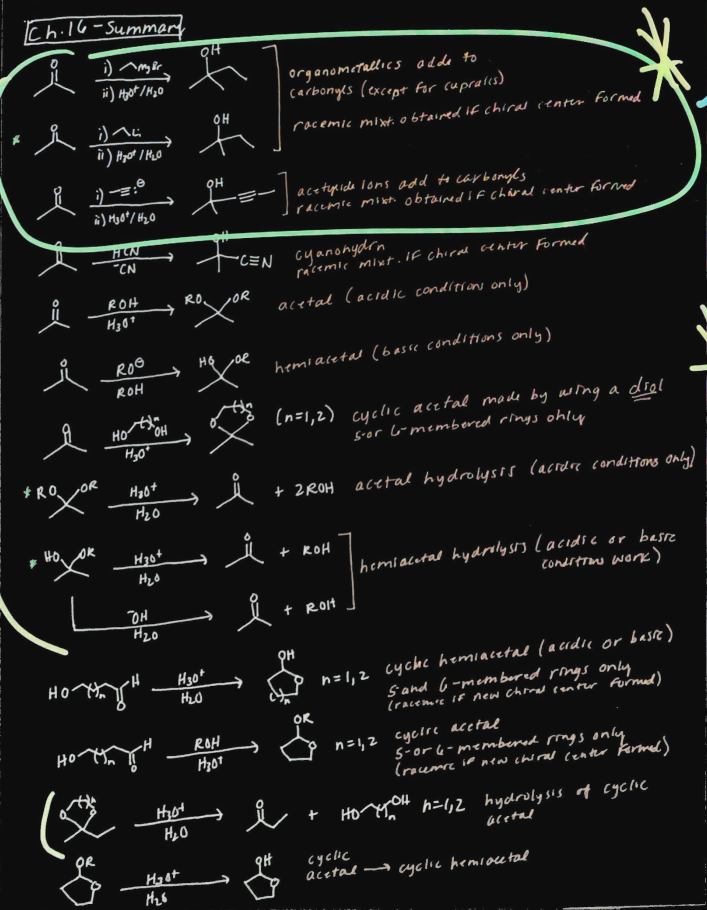 Ch.16 - Summary
i) MgBr
ii) H3O+/H2O
OH
organometallics adds to
carbonyls (except for cupralis)
racemic mixt. obtained if chiral center formed
* O
i) Li
ii) H3O+/H2O
OH
O
i) ≡:⊖
ii) H3O+/H2O
OH
acetylide ions add to carbonyls
racemic mixt. obtained if chiral center formed
O
HCN
-CN
OH
C≡N
cyanohydrn
racemic mixt. if chiral center formed
O
ROH
H3O+
RO OR
acetal (acidic conditions only)
O
RO⊖
ROH
HO OR
hemiacetal (basic conditions only)
O
HO ( )n OH
H3O+
O ( )n O
(n=1,2)
cyclic acetal made by using a diol
5-or 6-membered rings only
* RO OR
H3O+
H2O
O
+ 2ROH
acetal hydrolysis (acidic conditions only)
* HO OR
H3O+
H2O
O
+ ROH
hemiacetal hydrolysis (acidic or basic
conditions work)
-OH
H2O
O
+ ROH
HO ( )n H O
H3O+
H2O
OH
O
( )n
n=1,2
cyclic hemiacetal (acidic or basic)
5 and 6-membered rings only
(racemic if new chiral center formed)
HO ( )n H O
ROH
H3O+
OR
O
n=1,2
cyclic acetal
5-or 6-membered rings only
(racemic if new chiral center formed)
O ( )n O
H3O+
H2O
O
+ HO ( )n OH
n=1,2
hydrolysis of cyclic
acetal
OR
O
H3O+
H2O
OH
O
cyclic
acetal → cyclic hemiacetal